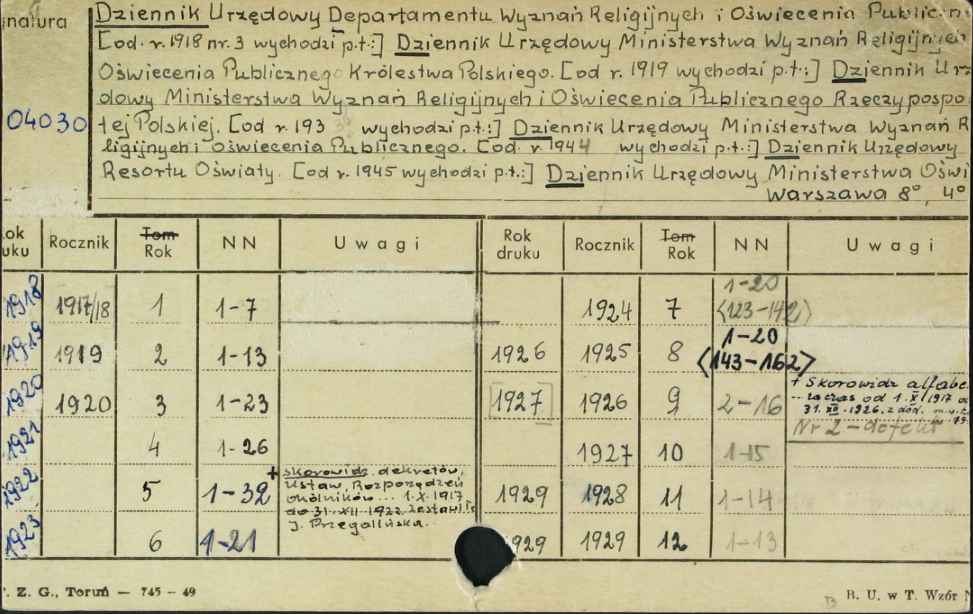 natura Dziennik Urzędowy Departamentu Wyznań Religijnych i Oświecenia
[od r. 1918 nr. 3 wychodzi p.t.:] Dziennik Urzędowy Ministerstwa Wyznań Religijnych
Oświecenia Publicznego Królestwa Polskiego. [od r. 1919 wychodzi p.t.:] Dziennik Urz
dowy Ministerstwa Wyznań Religijnych i Oświecenia Publicznego Rzeczypospo
04030 tej Polskiej. [od r. 193 wychodzi p.t.:] Dziennik Urzędowy Ministerstwa Wyznań R
ligijnych i Oświecenia Publicznego. [od r. 1944 wychodzi p.t.:] Dziennik Urzędowy
Resortu Oświaty. [od r. 1945 wychodzi p.t.:] Dziennik Urzędowy Ministerstwa Oświ
Warszawa 8°, 4°
ok uku Rocznik Tom Rok NN Uwagi Rok druku Rocznik Tom Rok NN Uwagi
1918 1917/18 1 1-7 1924 7 1-20 <123-142>
1919 1919 2 1-13 1926 1925 8 1-20 <143-162>
1920 1920 3 1-23 [1927] 1926 9 2-16 + Skorowidz alfabe
za czas od 1.X.1917 do
31.XII.1926. z dod.
Nr 2 - defekt
1921 4 1-26 1927 10 1-15
1922 5 1-32 + skorowidz dekretów, 1929 1928 11 1-14
Ustaw, Rozporządzeń
okólników... 1.X.1917
do 31.XII.1922 zestawiła
J. Przegalińska.
1923 6 1-21 1929 1929 12 1-13
. Z. G., Toruń — 745 – 49 B. U. w T. Wzór